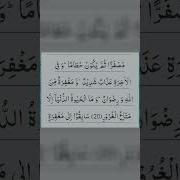 مُصْفَرًّا ثُمَّ يَكُونُ حُطَامًا ۖ وَ فِي
الْاٰخِرَةِ عَذَابٌ شَدِيْدٌ ۙ وَّ مَغْفِرَةٌ مِّنَ
اللّٰهِ وَ رِضْوَانٌ ؕ وَ مَا الْحَيٰوةُ الدُّنْيَاۤ اِلَّا
مَتَاعُ الْغُرُوْرِ (20) سَابِقُوْۤا اِلٰى مَغْفِرَةٍ